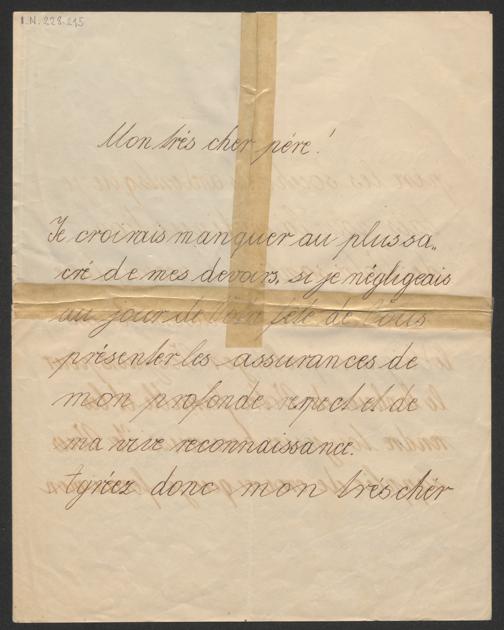 I.N. 228.215
Mon très cher père!
Je croirais manquer au plus sa„
cré de mes devoirs, si je négligeais
au jour de Votre fété de Vous
présenter les assurances de
mon profonde repect et de
ma vive reconnaissance.
Agréez donc mon très cher